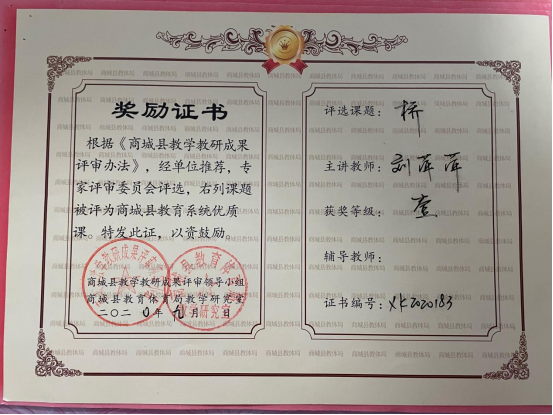 奖励证书
根据《商城县教学教研成果
评审办法》，经单位推荐，专
家评审委员会评选，右列课题
被评为商城县教育系统优质
课。特发此证，以资鼓励。
商城县教学教研成果评审领导小组
商城县教育体育局教学研究室
二〇二0年九月 日
评选课题：桥
主讲教师：刘萍萍
获奖等级：壹
辅导教师：
证书编号：XK2020183